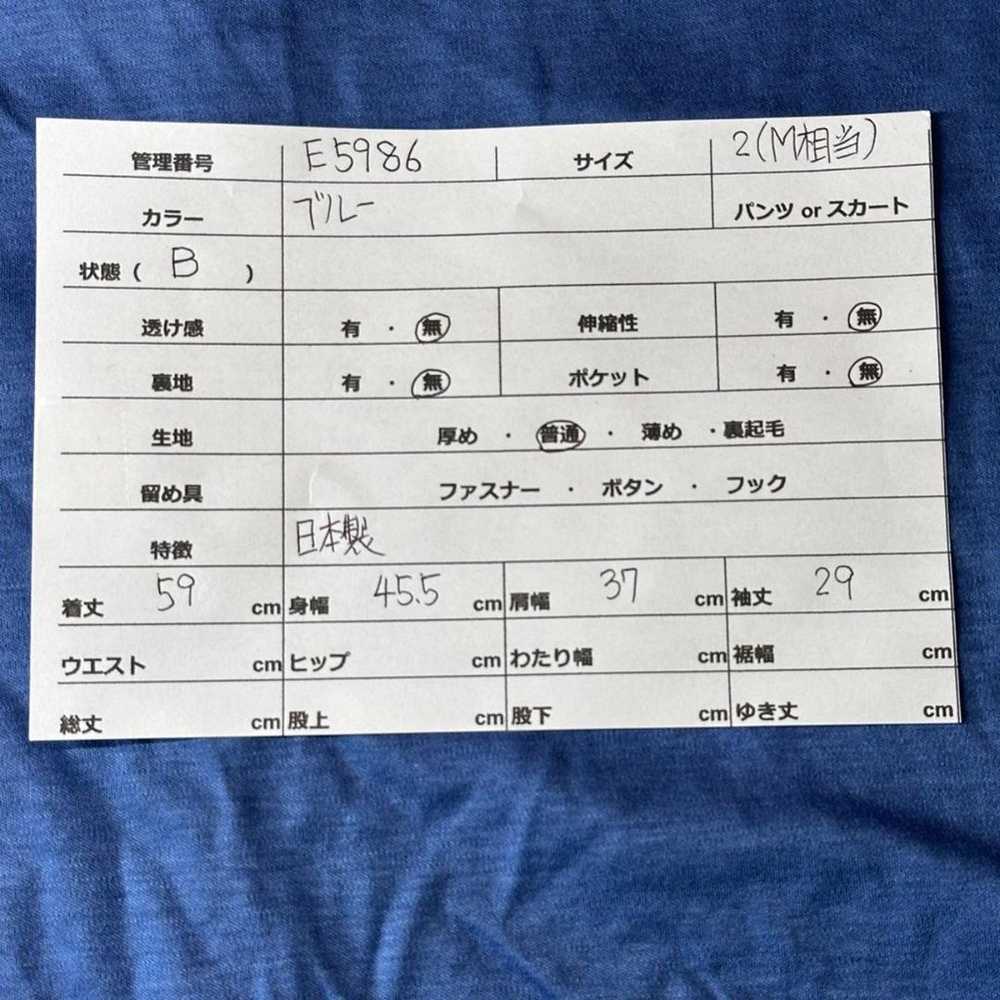 管理番号 E5986 サイズ 2(M相当)
カラー ブルー パンツ or スカート
状態 ( B )
透け感 有 ・ 無 伸縮性 有 ・ 無
裏地 有 ・ 無 ポケット 有 ・ 無
生地 厚め ・ 普通 ・ 薄め ・裏起毛
留め具 ファスナー ・ ボタン ・ フック
特徴 日本製
着丈 59 cm 身幅 45.5 cm 肩幅 37 cm 袖丈 29 cm
ウエスト cm ヒップ cm わたり幅 cm 裾幅 cm
総丈 cm 股上 cm 股下 cm ゆき丈 cm